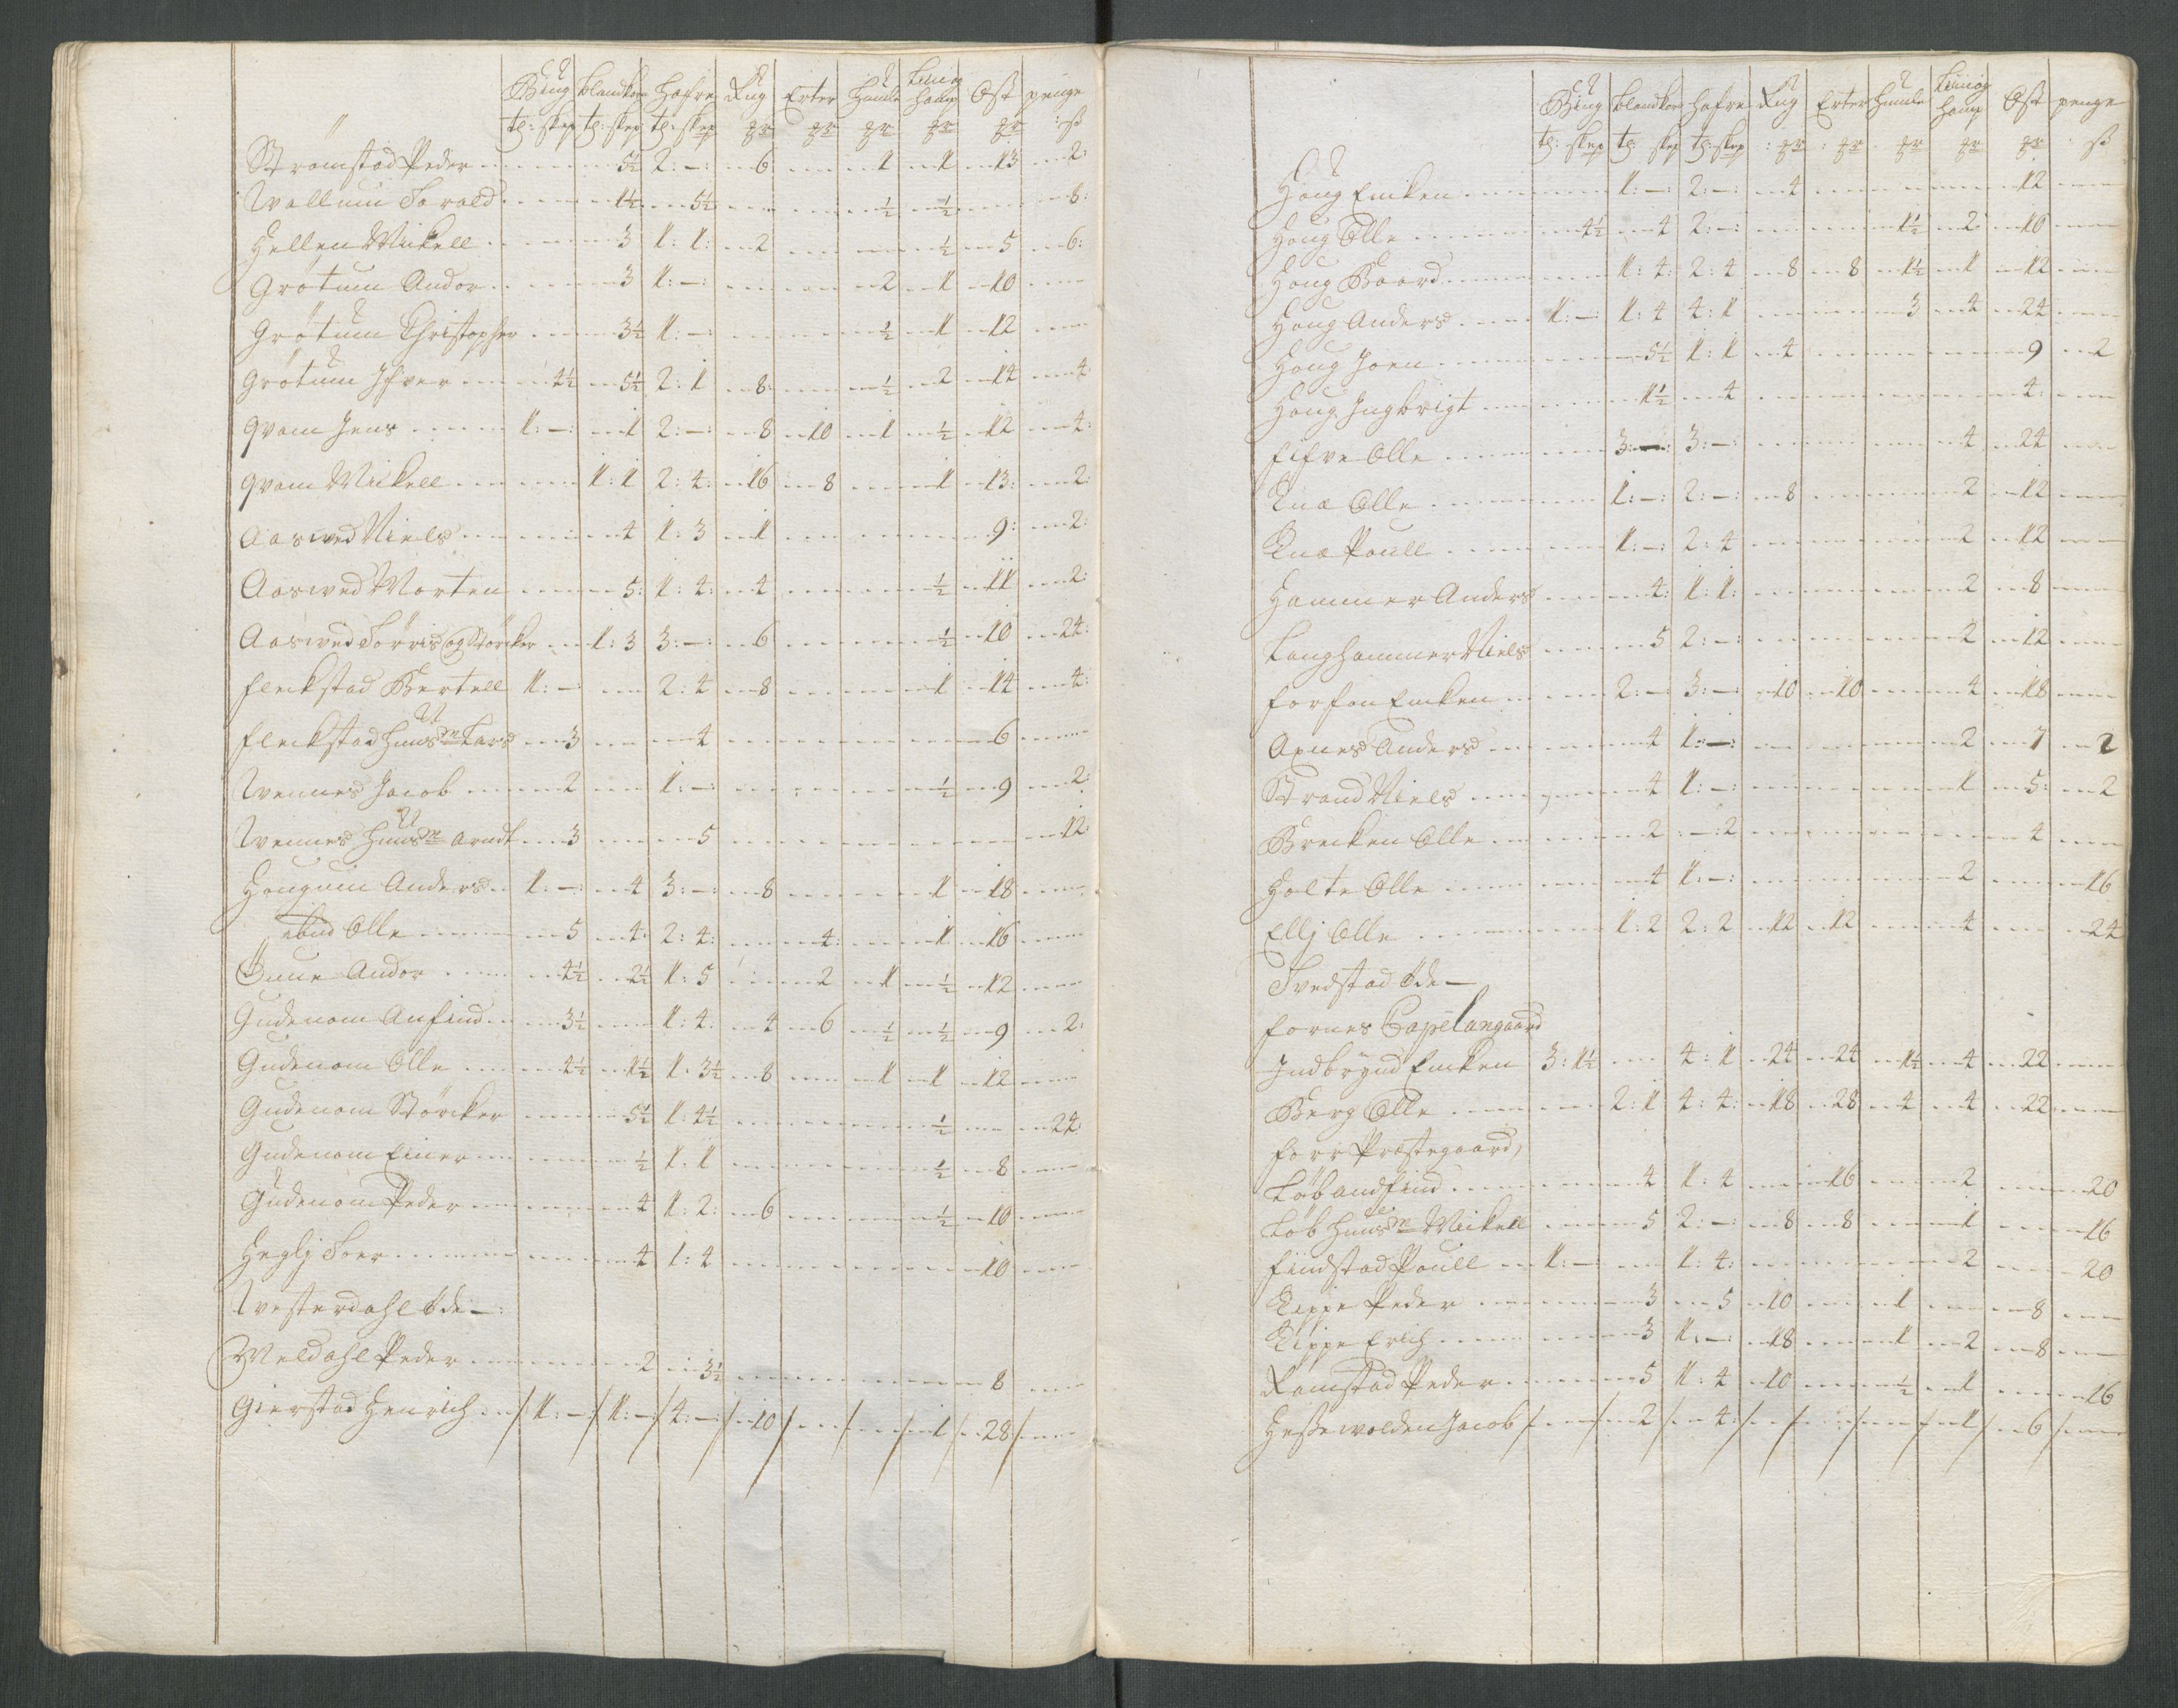 Biug Blandkorn Hafre Rug Erter Humle Liin og hamp Ost penge
tr: skep tr: skep tr: skep ß
Strömstad Peder 5½ 2:-: 6 1 1 13 2:
Wallum Torald 1½ 5½ ½ ½ 8:
Hellem Mickell 3 1:1: 2 ½ 5 6:
Grötum Andor 3 1:-: 2 1 10
Grötum Christopher 3½ 1:-: ½ 1 12
Grötum Ifver 4½ 5½ 2:1 8: ½ 2 14 4
Qvam Jens 1:-: 1 2:-: 8 10 1 ½ 12 4:
Qvam Mickell 1:1 2:4: 16 8 1 13: 2:
Aasved Niels 4 1:3 1 9: 2:
Aasved Morten 5: 1:4: 4 ½ 11 2:
Aasved Törris og Störcker 1:3 3:-: 6 ½ 10 24:
Fleckstad Bertell 1:-: 2:4 8 1 14 4:
Fleckstad Huusm Lars 3 4 6
Wennes Jacob 2 1:-: ½ 9 2:
Wennes Huusm Arndt 3 5 12:
Hougum Anders 1:-: 4 3:-: 8 1 18
ibid Olle 5 4: 2:4: 4: 1 16
Önne Andor 4½ 2½ 1:5 2 1 ½ 12
Gudenom Anfind 3½ 1:4: 4 6 ½ ½ 9 2:
Gudenom Olle 4½ 1½ 1:3½ 8 1 1 12
Gudenom Störcker 5½ 1:4½ ½ 24:
Gudenom Einer ½ 1:1 ½ 8
Gudenom Peder 4 1:2: 6 ½ 10
Heglj Toer 4 1:4 10
Westerdahl öde
Meldahl Peder 2 3½ 8
Gierstad Henrich 1:-: 1:-: 4:-: 10 1 28
Biug Blandkorn Hafre Rug Erter Humle Liin og hamp Ost penge
tr: skep tr: skep tr: skep ß
Houg Encken 1:-: 2:-: 4 12
Houg Olle 4½ 4 2:-: 1½ 2 10
Houg Baard 1:4: 2:4 8 8 1½ 1 12
Houg Anders 1:-: 1:4 4:1 3 4 24
Houg Joen 5½ 1:1 4 9 2
Houg Ingbrigt 1½ 4 4:
Fifve Olle 3:-: 3:-: 4 24
Kna Olle 1:-: 2:-: 8 2 12
Kna Poull 1:-: 2:4 2 12
Hammer Anders 4: 1:1: 2 8
Langhammer Niels 5 2:-: 2 12
Forfon Encken 2:-: 3:-: 10 10 4 18
Axnes Anders 4 1:-: 2 7 2
Strand Niels 4 1:-: 1 5: 2
Brecken Olle 2 :-:2 4
Holte Olle 4 1:-: 2 16
Ellj Olle 1:2 2:2 12 12 4 24
Tvedstad öde
Fornes Capelangaard
Indbrynd Encken 3:1½ 4:1 24 24 1½ 4 22
Berg Olle 2:1 4:4: 18 28 4 4 22
Forr Præstegaard
Löb Andfind 4 1:4 16 2 20
Löb Huusm Mickell 5 2:-: 8 8 1 16
Findstad Poull 1:-: 1:4: 2 20
Kippe Peder 3 5 10 1 8
Kippe Erich 3 1:-: 18 1 2 8
Ramstad Peder 5 1:4 10 ½ 1 16
Hessewolden Jacob 2 4: 1 6